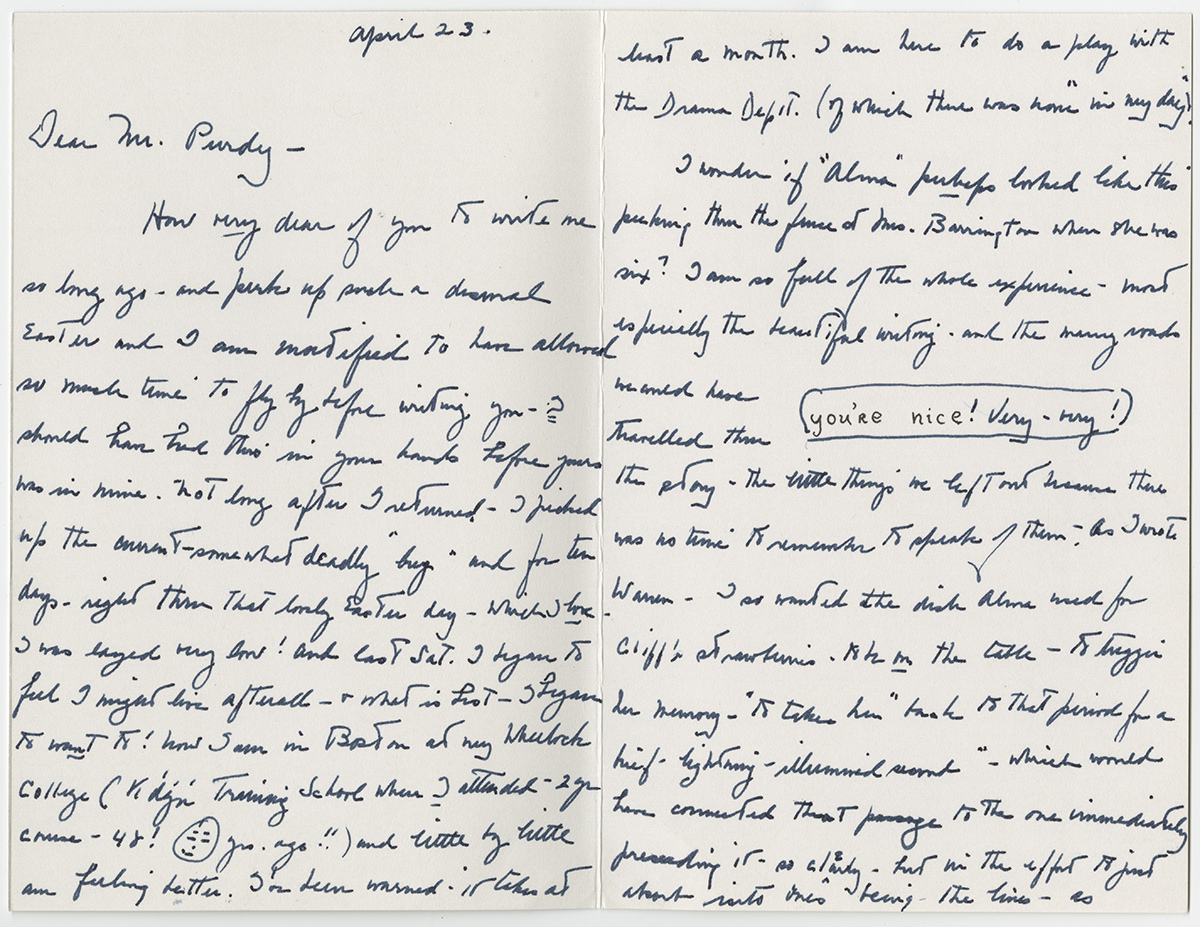 April 23.
Dear Mr. Purdy -
How very dear of you to write me
so long ago - and perk up such a dismal
Easter and I am mortified to have allowed
so much time to fly by before writing you - I
should have had this in your hands before yours
was in mine. Not long after I returned - I picked
up the current - somewhat deadly "bug" and for ten
days - right thru that lovely Easter day - which I love -
I was layed very low! And last Sat. I began to
feel I might live afterall - & what is best - I began
to want to! Now I am in Boston at my Wheelock
College (K'dg'n Training School where I attended - 2 yr
course - 48! yrs. ago!!) and little by little
am feeling better. I've been warned - it takes at
least a month. I am here to do a play with
the Drama Dep't. (of which there was none "in my day")!
I wonder if "Alma" perhaps looked like this
peeking thru the fence at Mrs. Barrington when she was
six? I am so full of the whole experience - most
especially the beautiful writing - and the many roads
we could have
travelled thru
you're nice! Very - very!
the story - the little things we left out because there
was no time to remember to speak of them - As I wrote
Warren - I so wanted the dish Alma used for
Cliff's strawberries - to be on the table - to trigger
her memory - "to take her" back to that period for a
brief - lightning - illumined second" - which would
have connected that passage to the one immediately
preceeding it - so clearly - but in the effort to just
about into ones "being" - the lines - as